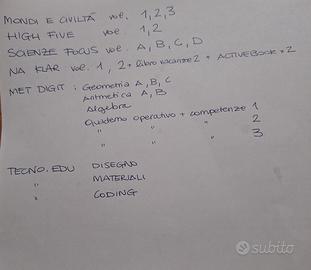 MONDI E CIVILTÀ vol. 1,2,3
HIGH FIVE vol. 1,2
SCIENZE FOCUS vol. A, B, C, D
NA KLAR vol. 1, 2 + libro vacanze 2 + ACTIVEBOOK x 2
MET DIGIT : Geometria A, B, C
Aritmetica A, B
Algebra
Quaderno operativo + competenze 1
" " " 2
" " " 3
TECNO. EDU DISEGNO
" MATERIALI
" CODING
subito